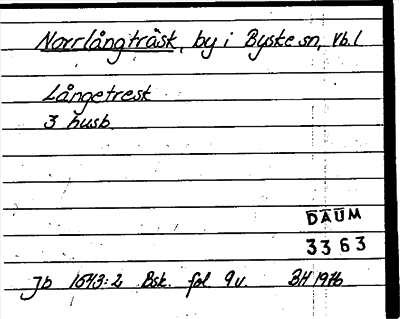 Norrlångträsk, by i Byske sn, Vb.l
Långetresk
3 husb.
DAUM
3363
Jb 1543:2 Bsk. fol 9v. BH 1976